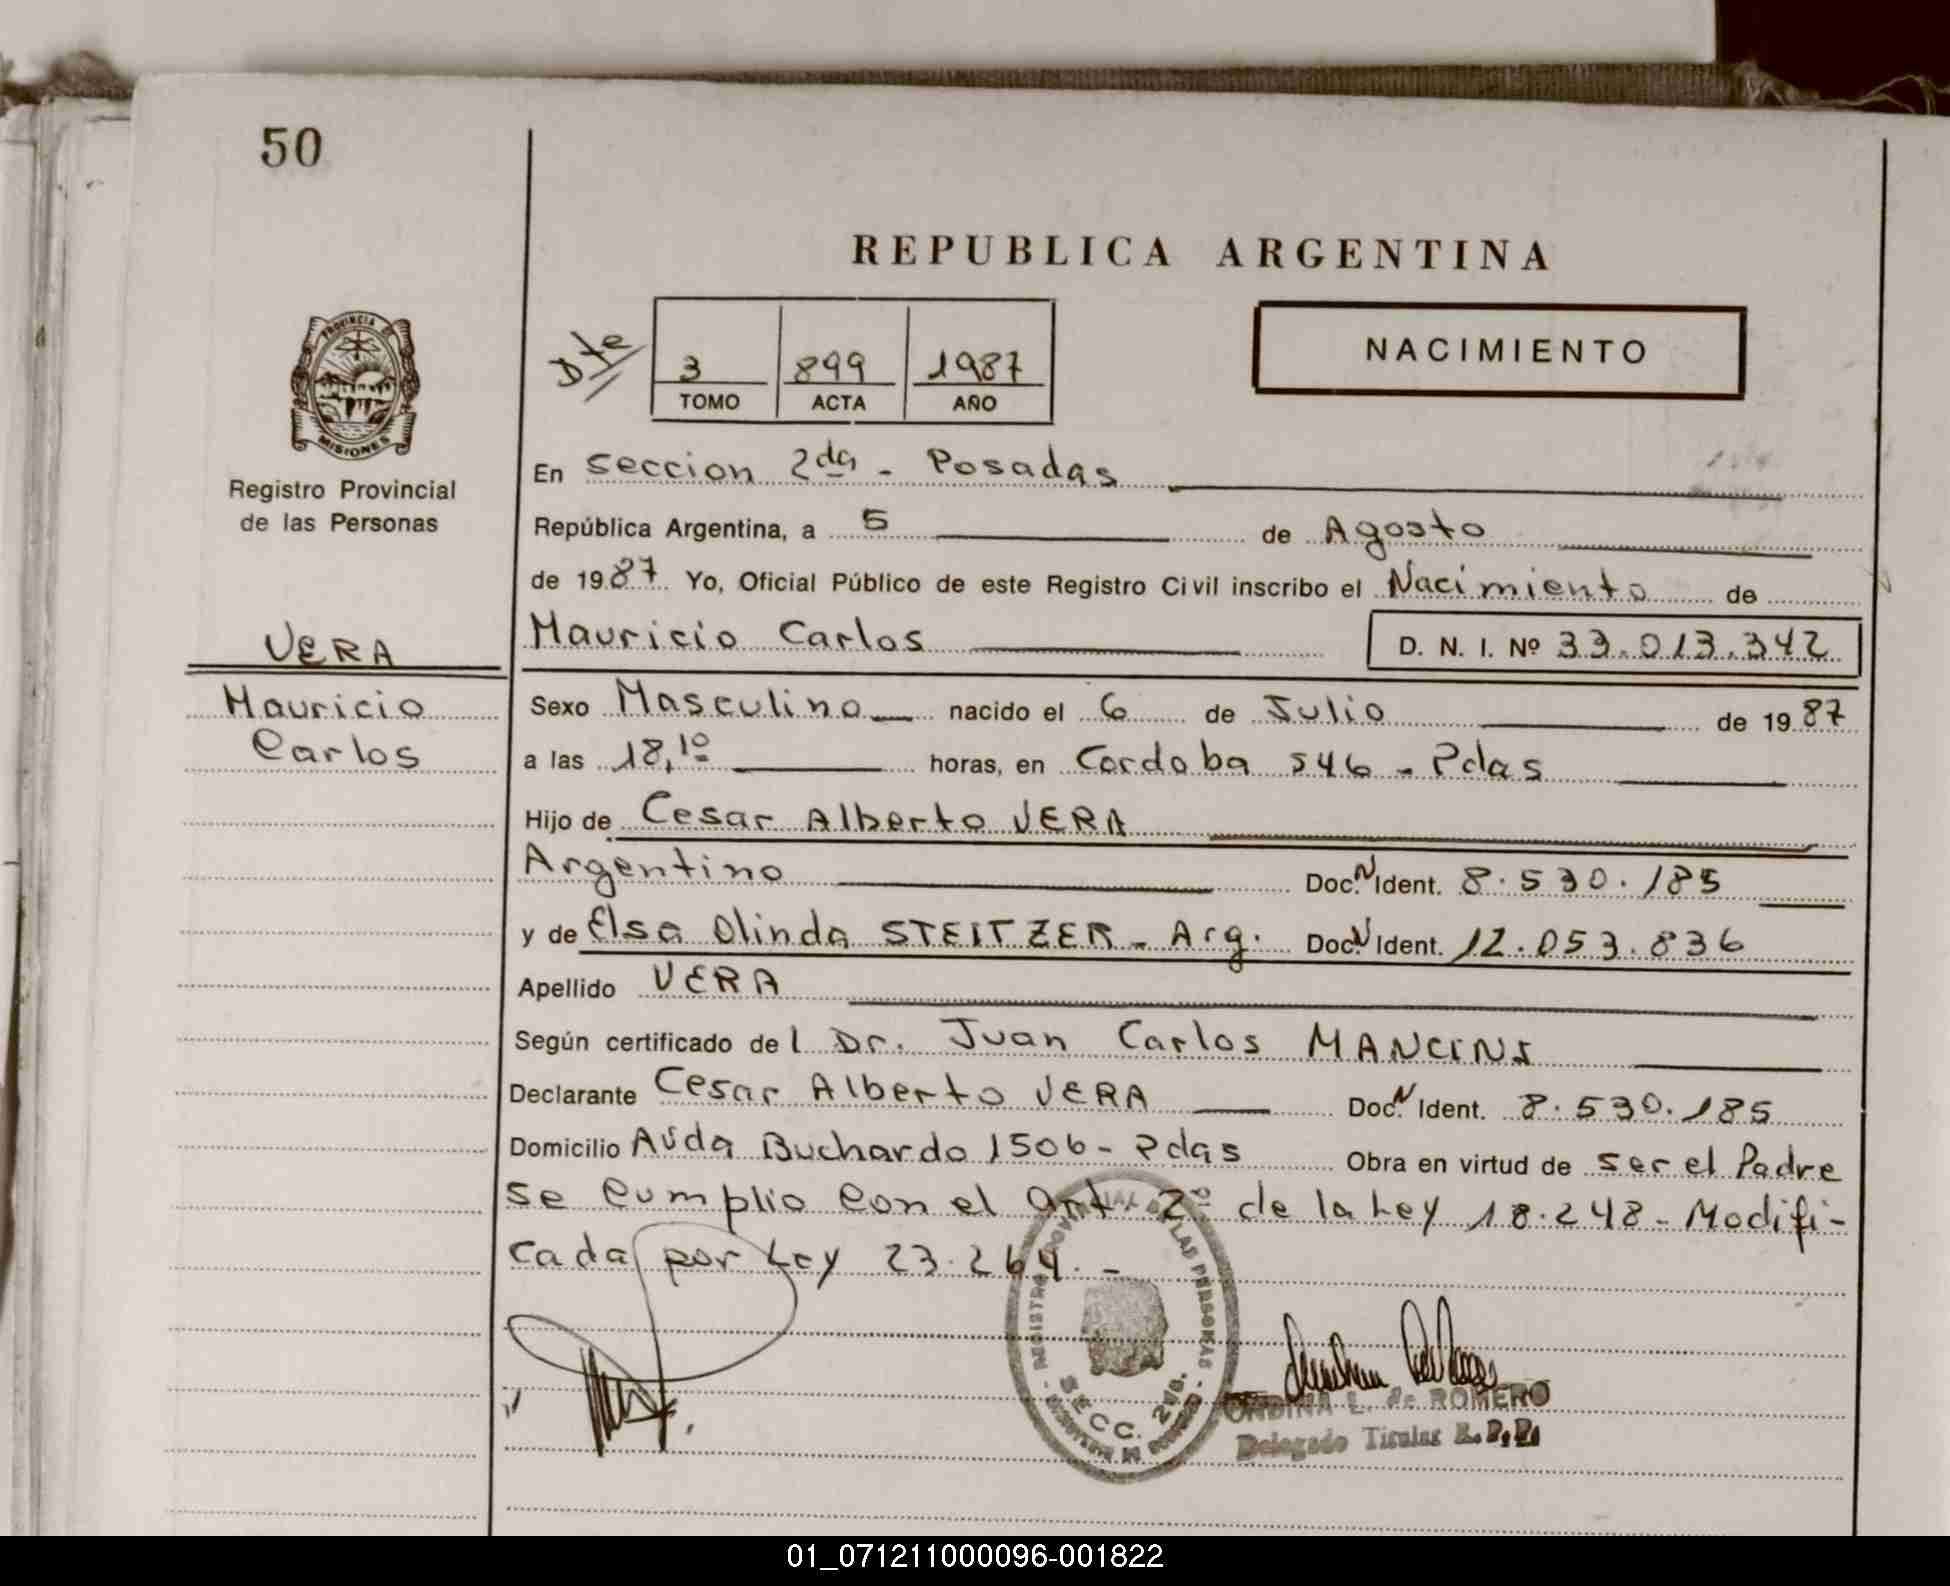 50
REPUBLICA ARGENTINA
PROVINCIA DE
MISIONES
Registro Provincial
de las Personas
Dte
3 899 1987
TOMO ACTA AÑO
NACIMIENTO
En seccion 2da - Posadas
República Argentina, a 5 de Agosto
de 1987 Yo, Oficial Público de este Registro Civil inscribo el Nacimiento de
VERA
Mauricio
Carlos
Mauricio Carlos D. N. I. Nº 33.013.342
Sexo Masculino nacido el 6 de Julio de 1987
a las 18,10 horas, en Cordoba 546 - Pdas
Hijo de Cesar Alberto VERA
Argentino Doc. N Ident. 8.530.185
y de Elsa Olinda STEITZER - Arg. Doc. N Ident. 12.053.836
Apellido VERA
Según certificado del Dr. Juan Carlos MANCINI
Declarante Cesar Alberto VERA Doc. N Ident. 8.530.185
Domicilio Avda Buchardo 1506 - Pdas Obra en virtud de ser el Padre
se cumplio con el art 2º de la Ley 18.248 - Modifi-
cada por Ley 23.264. -
REGISTRO PROVINCIAL DE LAS PERSONAS
SECC. 2da.
ONDINA L. de ROMERO
Delegado Titular R.P.P.
01_071211000096-001822